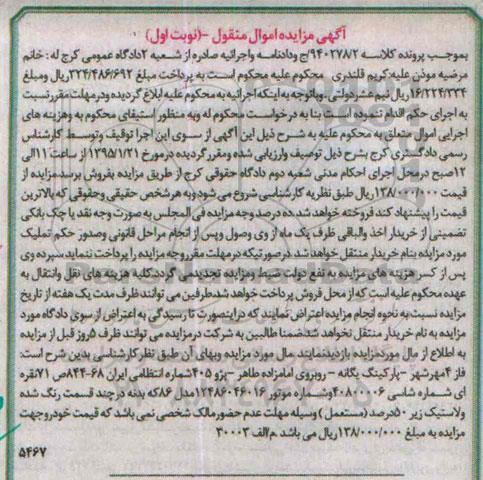 آگهی مزایده اموال منقول -(نوبت اول)
بموجب پرونده کلاسه ۹۴۰۲۷۸/۲ج ودادنامه واجرائیه صادره از شعبه ۲دادگاه عمومی کرج له : خانم
مرضیه موذن علیه:کریم قلندری محکوم علیه محکوم است به پرداخت مبلغ ۳۲۴/۴۸۶/۶۹۲ ریال ومبلغ
۱۶/۲۲۴/۳۳۴ریال نیم عشردولتی.وباتوجه به اینکه اجرائیه به محکوم علیه ابلاغ گردیده ودرمهلت مقررنسبت
به اجرای حکم اقدام ننموده است بنا به درخواست محکوم له وبه منظور استیفای محکوم به وهزینه های
اجرایی اموال متعلق به محکوم علیه به شرح ذیل این آگهی از سوی این اجرا توقیف وتوسط کارشناس
رسمی دادگستری کرج بشرح ذیل توصیف وارزیابی شده ومقررگردیده درمورخ ۱۳۹۵/۱/۲۱ از ساعت ۱۱الی
۱۲صبح درمحل اجرای احکام مدنی شعبه دوم دادگاه حقوقی کرج از طریق مزایده بفروش برسدمزایده از
قیمت ۱۳۸/۰۰۰/۰۰۰ریال طبق نظریه کارشناسی شروع می شود وبه هرشخص حقیقی وحقوقی که بالاترین
قیمت را پیشنهاد کند فروخته خواهد شد.ده درصد وجه مزایده فی المجلس به صورت وجه نقد یا چک بانکی
تضمینی از خریدار اخذ والباقی ظرف یک ماه از وی وصول وپس از انجام مراحل قانونی وصدور حکم تملیک
مورد مزایده بنام خریدار منتقل خواهدشد.درصورتیکه درمهلت مقرروجه مزایده را پرداخت ننماید سپرده وی
پس از کسر هزینه های مزایده به نفع دولت ضبط ومزایده تجدید می گردد.کلیه هزینه های نقل وانتقال به
عهده محکوم علیه است که از محل فروش پرداخت خواهد شد.طرفین می توانند ظرف مدت یک هفته از تاریخ
مزایده نسبت به نحوه انجام مزایده اعتراض نمایند که دراینصورت تا رسیدگی به اعتراض ازسوی دادگاه مورد
مزایده به نام خریدار منتقل نخواهد شد.ضمنا طالبین به شرکت درمزایده می توانند ظرف ۵روز قبل از مزایده
به اطلاع از مال موردمزایده بازدیدنمایند. مال مورد مزایده وبهای آن طبق نظرکارشناسی بدین شرح است:
فاز ۴مهرشهر -پارکینگ یگانه - روبروی امامزاده طاهر -پژو ۴۰۵شماره انتظامی ایران ۶۸-۸۴۴ص ۷۱نقره
ای شماره شاسی ۴۰۸۰۰۶ وشماره موتور ۱۲۴۸۶۰۴۶۰۱۶مدل ۸۶که بدنه درچند قسمت رنگ شده
ولاستیک زیر ۵۰درصد (مستعمل) وسیله مهلت عدم حضورمالک شخصی نمی باشد که قیمت خودروجهت
مزایده به مبلغ ۱۳۸/۰۰۰/۰۰۰ریال می باشد .م/الف ۳۰۰۰۳
۵۴۶۷